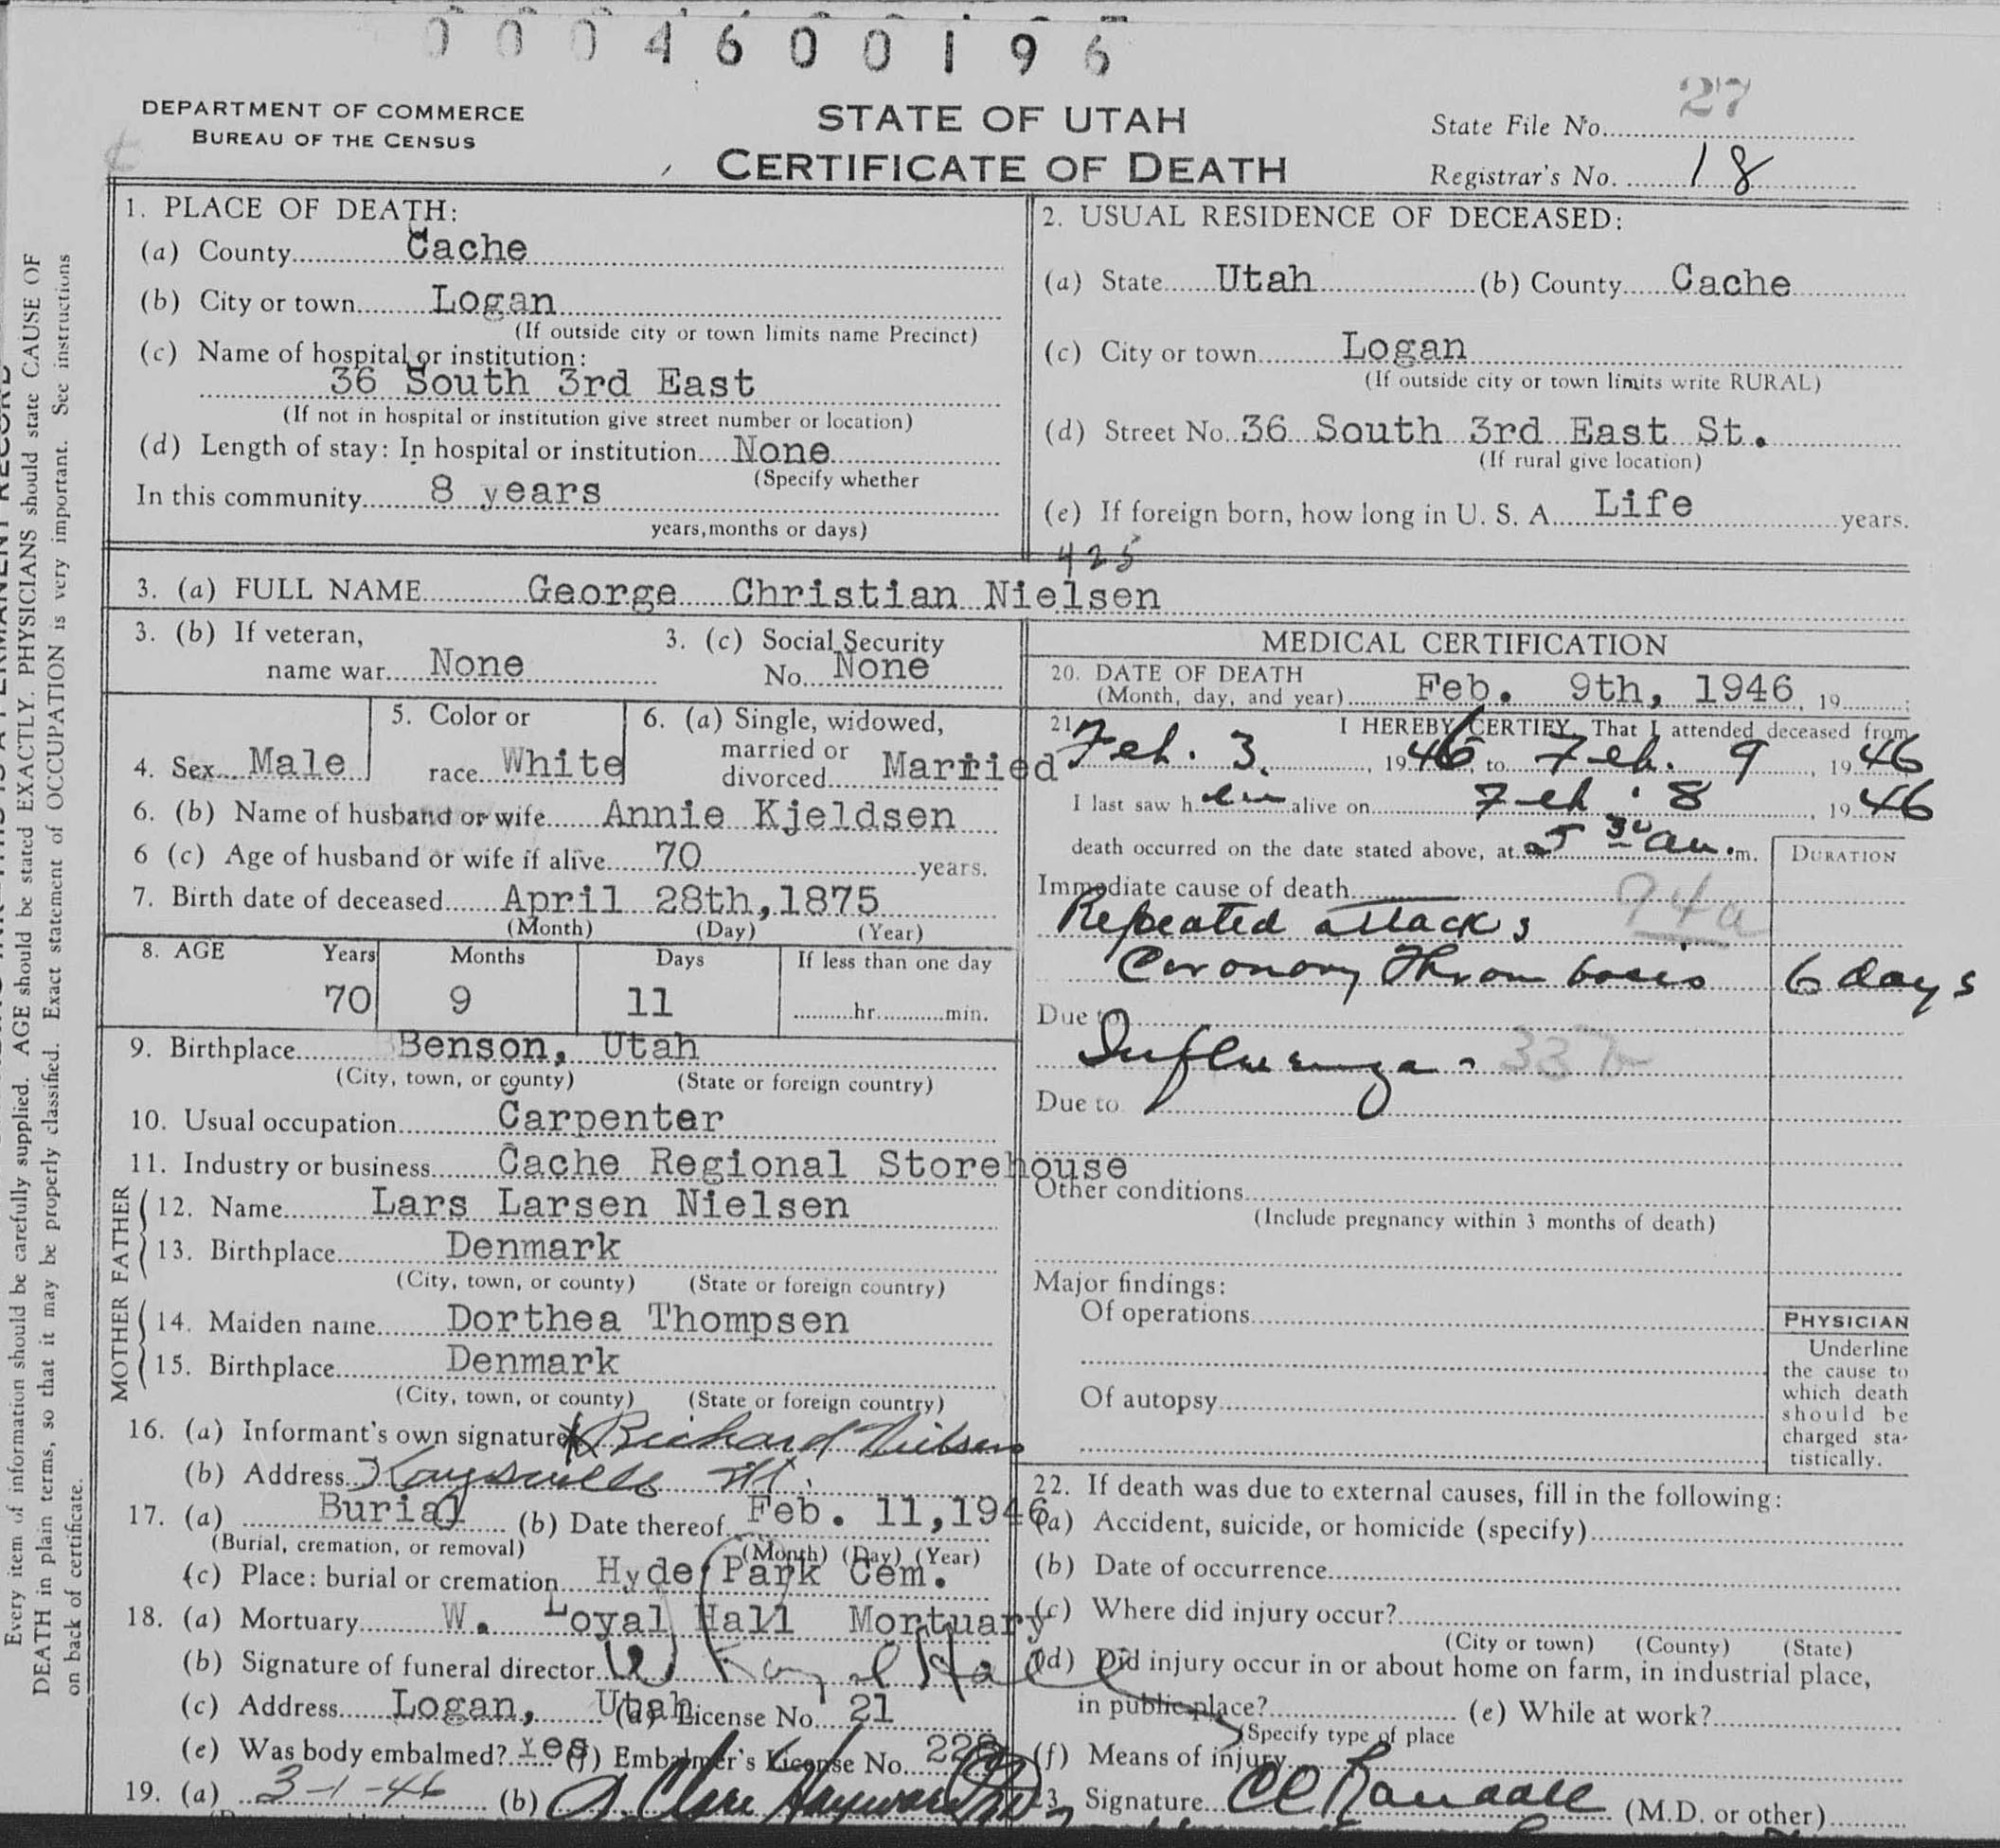 0004600196
DEPARTMENT OF COMMERCE
BUREAU OF THE CENSUS
STATE OF UTAH
CERTIFICATE OF DEATH
State File No. 27
Registrar's No. 18
1. PLACE OF DEATH:
(a) County Cache
(b) City or town Logan
(If outside city or town limits name Precinct)
(c) Name of hospital or institution:
36 South 3rd East
(If not in hospital or institution give street number or location)
(d) Length of stay: In hospital or institution None
(Specify whether
In this community 8 years
years, months or days)
2. USUAL RESIDENCE OF DECEASED:
(a) State Utah (b) County Cache
(c) City or town Logan
(If outside city or town limits write RURAL)
(d) Street No. 36 South 3rd East St.
(If rural give location)
(e) If foreign born, how long in U. S. A. Life years.
425
3. (a) FULL NAME George Christian Nielsen
3. (b) If veteran, name war None
3. (c) Social Security No. None
4. Sex Male
5. Color or race White
6. (a) Single, widowed, married or divorced Married
6. (b) Name of husband or wife Annie Kjeldsen
6 (c) Age of husband or wife if alive 70 years.
7. Birth date of deceased April 28th, 1875
(Month) (Day) (Year)
8. AGE Years Months Days If less than one day
70 9 11 hr. min.
9. Birthplace Benson, Utah
(City, town, or county) (State or foreign country)
10. Usual occupation Carpenter
11. Industry or business Cache Regional Storehouse
FATHER
12. Name Lars Larsen Nielsen
13. Birthplace Denmark
(City, town, or county) (State or foreign country)
MOTHER
14. Maiden name Dorthea Thompsen
15. Birthplace Denmark
(City, town, or county) (State or foreign country)
16. (a) Informant's own signature X Richard Nielsen
(b) Address Kaysville Ut.
17. (a) Burial (b) Date thereof Feb. 11, 1946
(Burial, cremation, or removal) (Month) (Day) (Year)
(c) Place: burial or cremation Hyde Park Cem.
18. (a) Mortuary W. Loyal Hall Mortuary
(b) Signature of funeral director W Loyal Hall
(c) Address Logan, Utah (d) License No. 21
(e) Was body embalmed? Yes (f) Embalmer's License No. 228
19. (a) 3-1-46 (b)
MEDICAL CERTIFICATION
20. DATE OF DEATH
(Month, day, and year) Feb. 9th, 1946, 19
21. I HEREBY CERTIFY, That I attended deceased from
Feb. 3, 1946, to Feb. 9, 1946
I last saw him alive on Feb. 8, 1946
death occurred on the date stated above, at 5 30 am. m.
DURATION
Immediate cause of death 94a
Repeated attacks
Coronary Thrombosis 6 days
Due to
Influenza - 33
Due to
Other conditions
(Include pregnancy within 3 months of death)
Major findings:
Of operations
Of autopsy
PHYSICIAN
Underline
the cause to
which death
should be
charged sta-
tistically.
22. If death was due to external causes, fill in the following:
(a) Accident, suicide, or homicide (specify)
(b) Date of occurrence
(c) Where did injury occur?
(City or town) (County) (State)
(d) Did injury occur in or about home on farm, in industrial place,
in public place? (e) While at work?
(Specify type of place
(f) Means of injury
23. Signature CC Randall (M.D. or other)
Every item of information should be carefully supplied. AGE should be stated EXACTLY. PHYSICIANS should state CAUSE OF
DEATH in plain terms, so that it may be properly classified. Exact statement of OCCUPATION is very important. See instructions
on back of certificate.